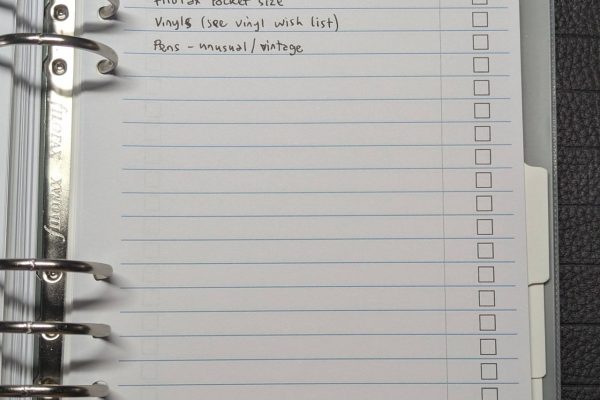 Filofax Pocket size
Vinyls (see vinyl wish list)
Pens - unusual / vintage
filofax
filofax